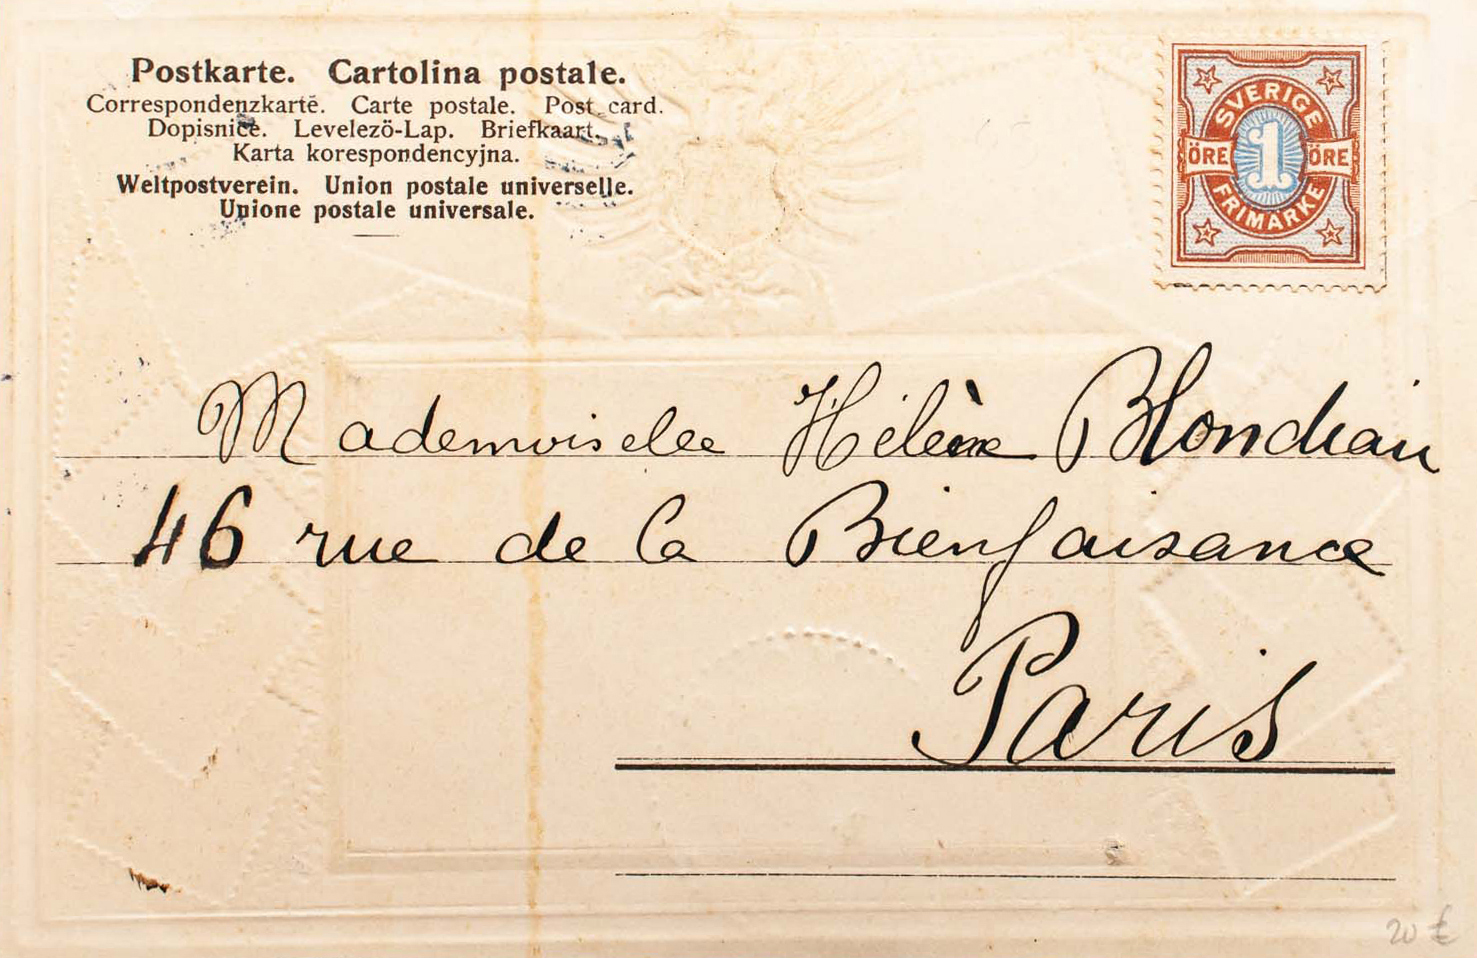 Postkarte. Cartolina postale.
Correspondenzkarte. Carte postale. Post card.
Dopisnice. Levelezö-Lap. Briefkaart.
Karta korespondencyjna.
Weltpostverein. Union postale universelle.
Unione postale universale.
SVERIGE
ÖRE 1 ÖRE
FRIMÄRKE
Mademoiselle Hélène
46 rue de la Bienfaisance
Paris
20 €